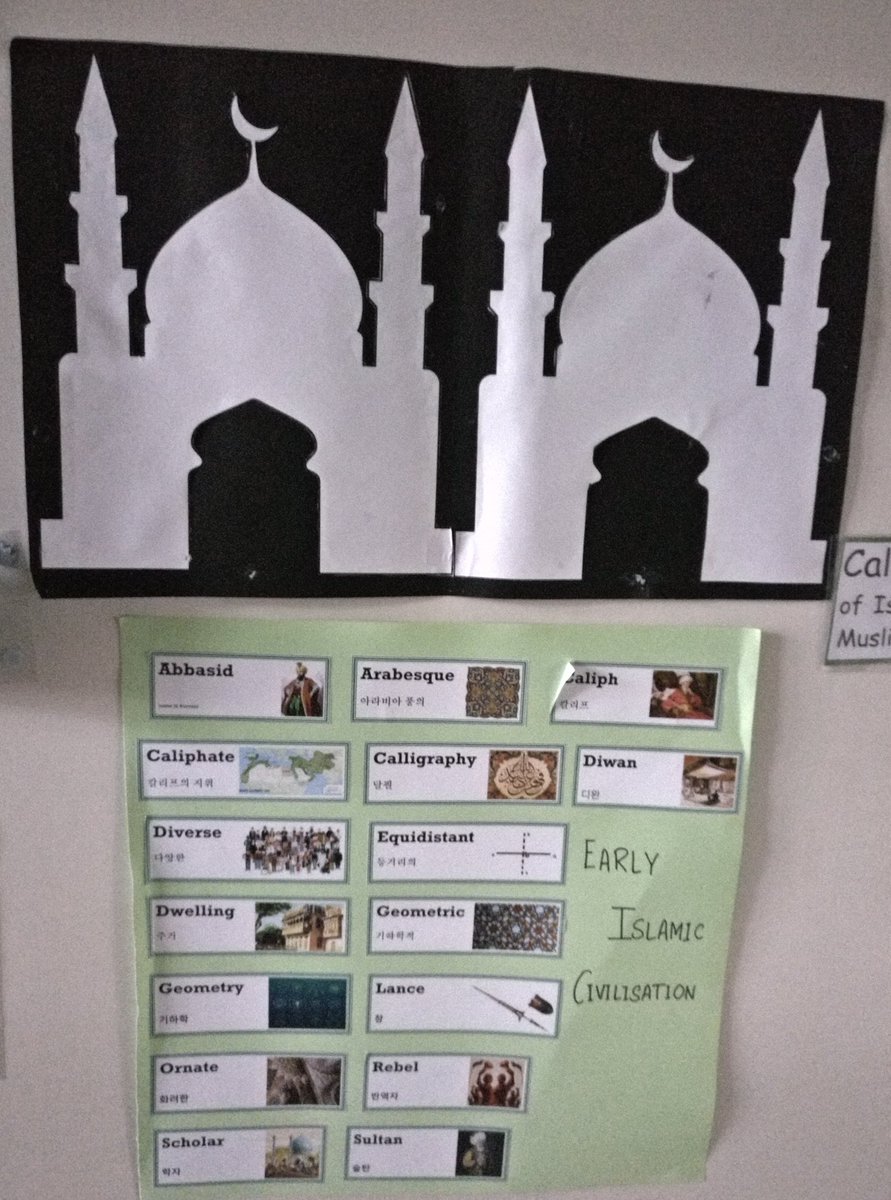 Cal
of Is
Musli
Abbasid
Arabesque
아라비아 풍의
Caliph
칼리프
Caliphate
칼리프의 지위
Calligraphy
달필
Diwan
디완
Diverse
다양한
Equidistant
등거리의
EARLY
ISLAMIC
CIVILISATION
Dwelling
주거
Geometric
기하학적
Geometry
기하학
Lance
창
Ornate
화려한
Rebel
반역자
Scholar
학자
Sultan
술탄